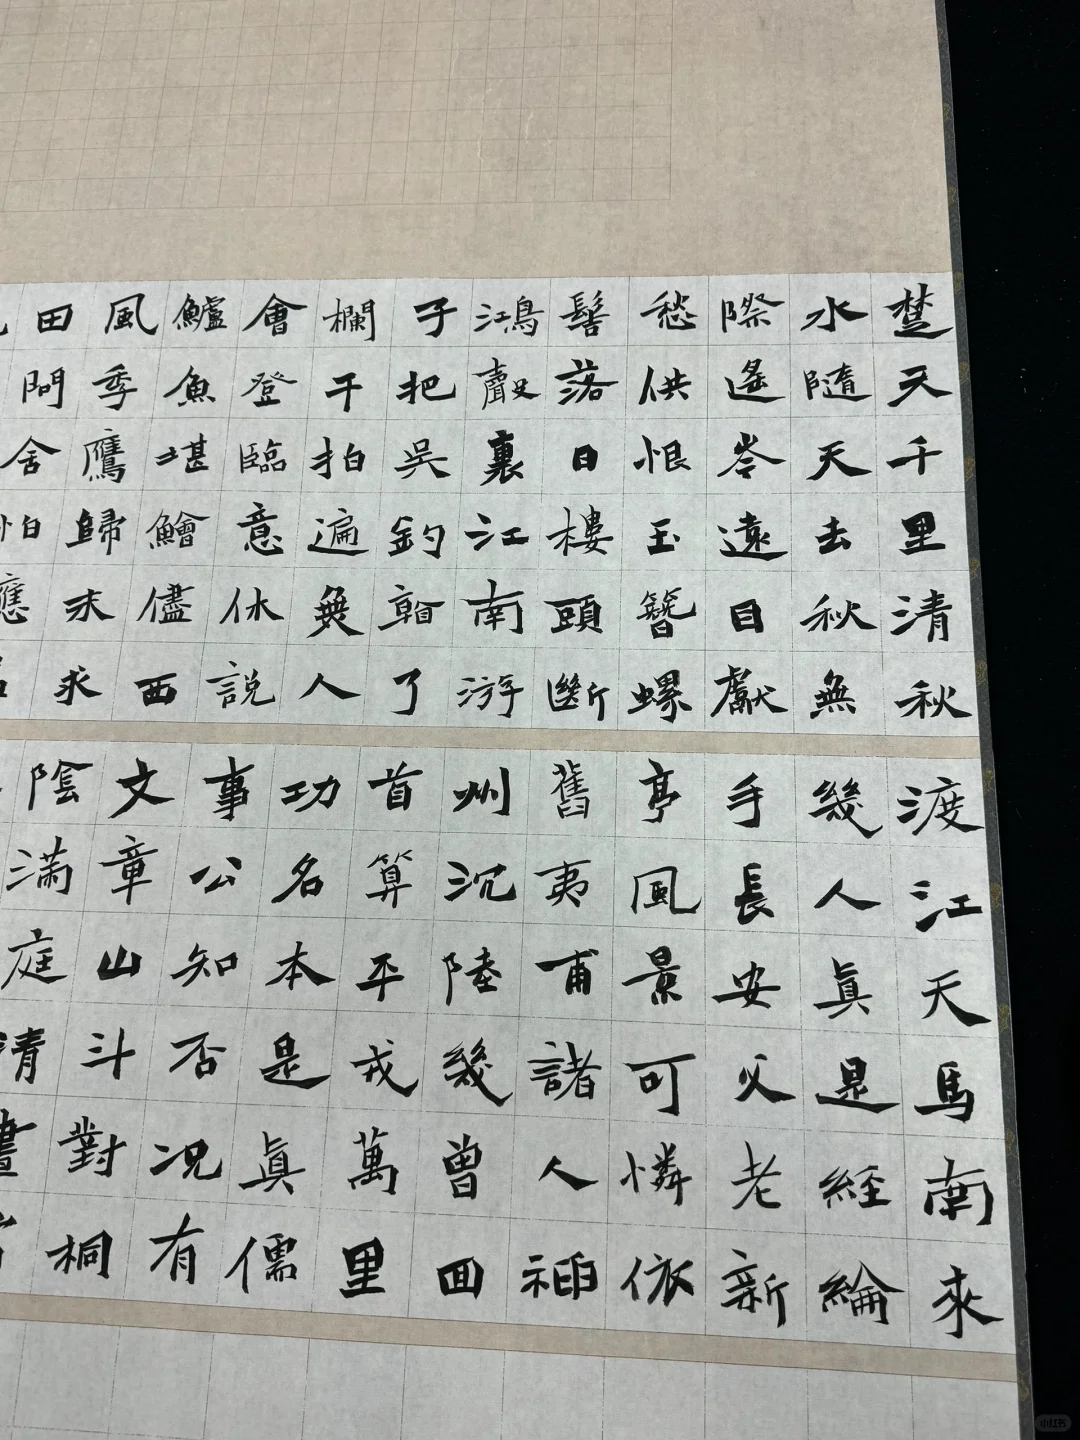 楚天千里清秋
水隨天去秋無
際遙岑遠目獻
愁供恨玉簪螺
髻落日樓頭斷
鴻聲裏江南游
子把吳鈎看了
欄干拍遍無人
會登臨意休說
鱸魚堪鱠儘西
風季鷹歸未求
田問舍怕應
渡江天馬南來
幾人眞是經綸
手長安父老新
亭風景可憐依
舊夷甫諸人神
州沉陸幾曾回
首算平戎萬里
功名本是眞儒
事公知否况有
文章山斗對桐
陰滿庭清晝